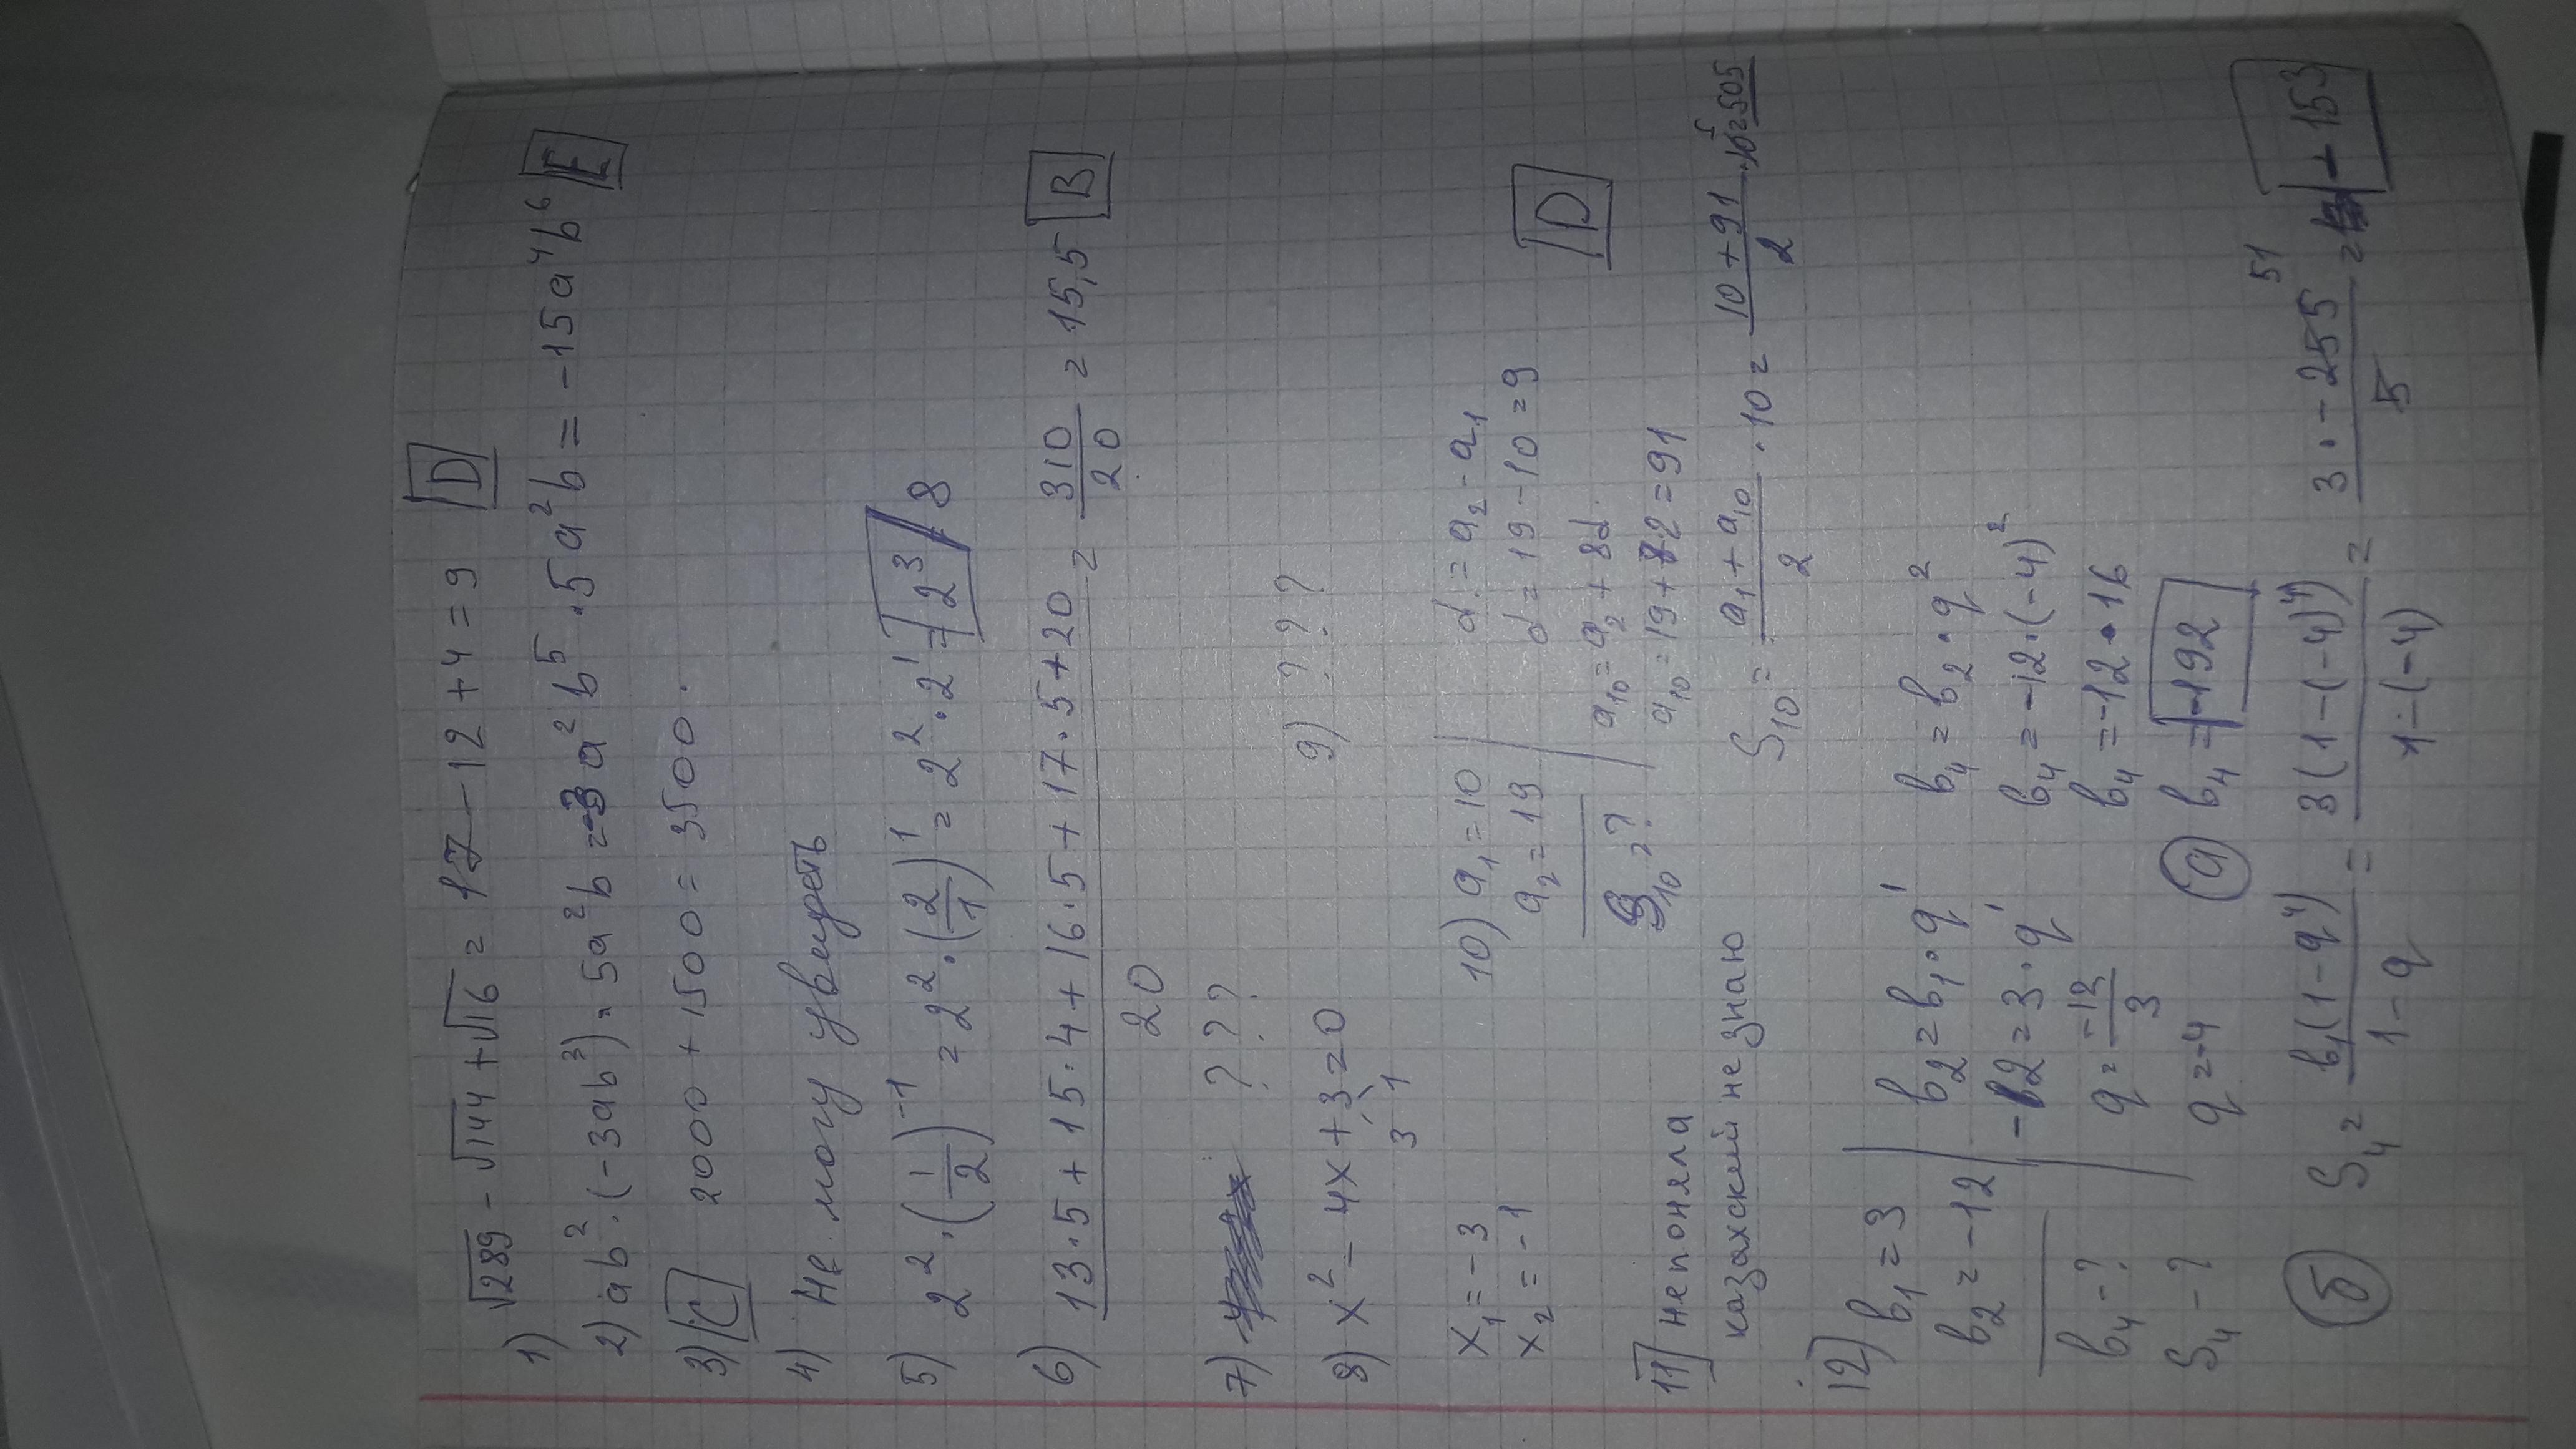 1) √289 - √144 + √16 = 17 - 12 + 4 = 9 D
2) ab² · (-3ab³) · 5a²b = -3a²b⁵ · 5a²b = -15a⁴b⁶ E
3) C 2000 + 1500 = 3500.
4) Не могу увидеть
5) 2² · (1/2)⁻¹ = 2² · (2/1)¹ = 2² · 2¹ = 2³ / 8
6) (13·5 + 15·4 + 16·5 + 17·5 + 20)/20 = 310/20 = 15,5 B
7) ? ? ?
9) ? ? ? ?
8) x² - 4x + 3 = 0
3 1
x₁ = -3
x₂ = -1
10) a₁ = 10
a₂ = 19
S₁₀ = ?
d = a₂ - a₁
d = 19 - 10 = 9
D
a₁₀ = a₂ + 8d
a₁₀ = 19 + 72 = 91
S₁₀ = (a₁ + a₁₀)/2 · 10 = (10 + 91)/2 · 10 = 505
5
11) не поняла
казахский не знаю
12) b₁ = 3
b₂ = -12
b₄ - ?
S₄ - ?
b₂ = b₁ · q¹
-12 = 3 · q¹
q = -12/3
q = -4
b₄ = b₂ · q²
b₄ = -12 · (-4)²
b₄ = -12 · 16
а b₄ = -192
б S₄ = b₁(1 - q⁴)/(1 - q) = 3(1 - (-4)⁴)/(1 - (-4)) = 3 · -255/5 = -153
51